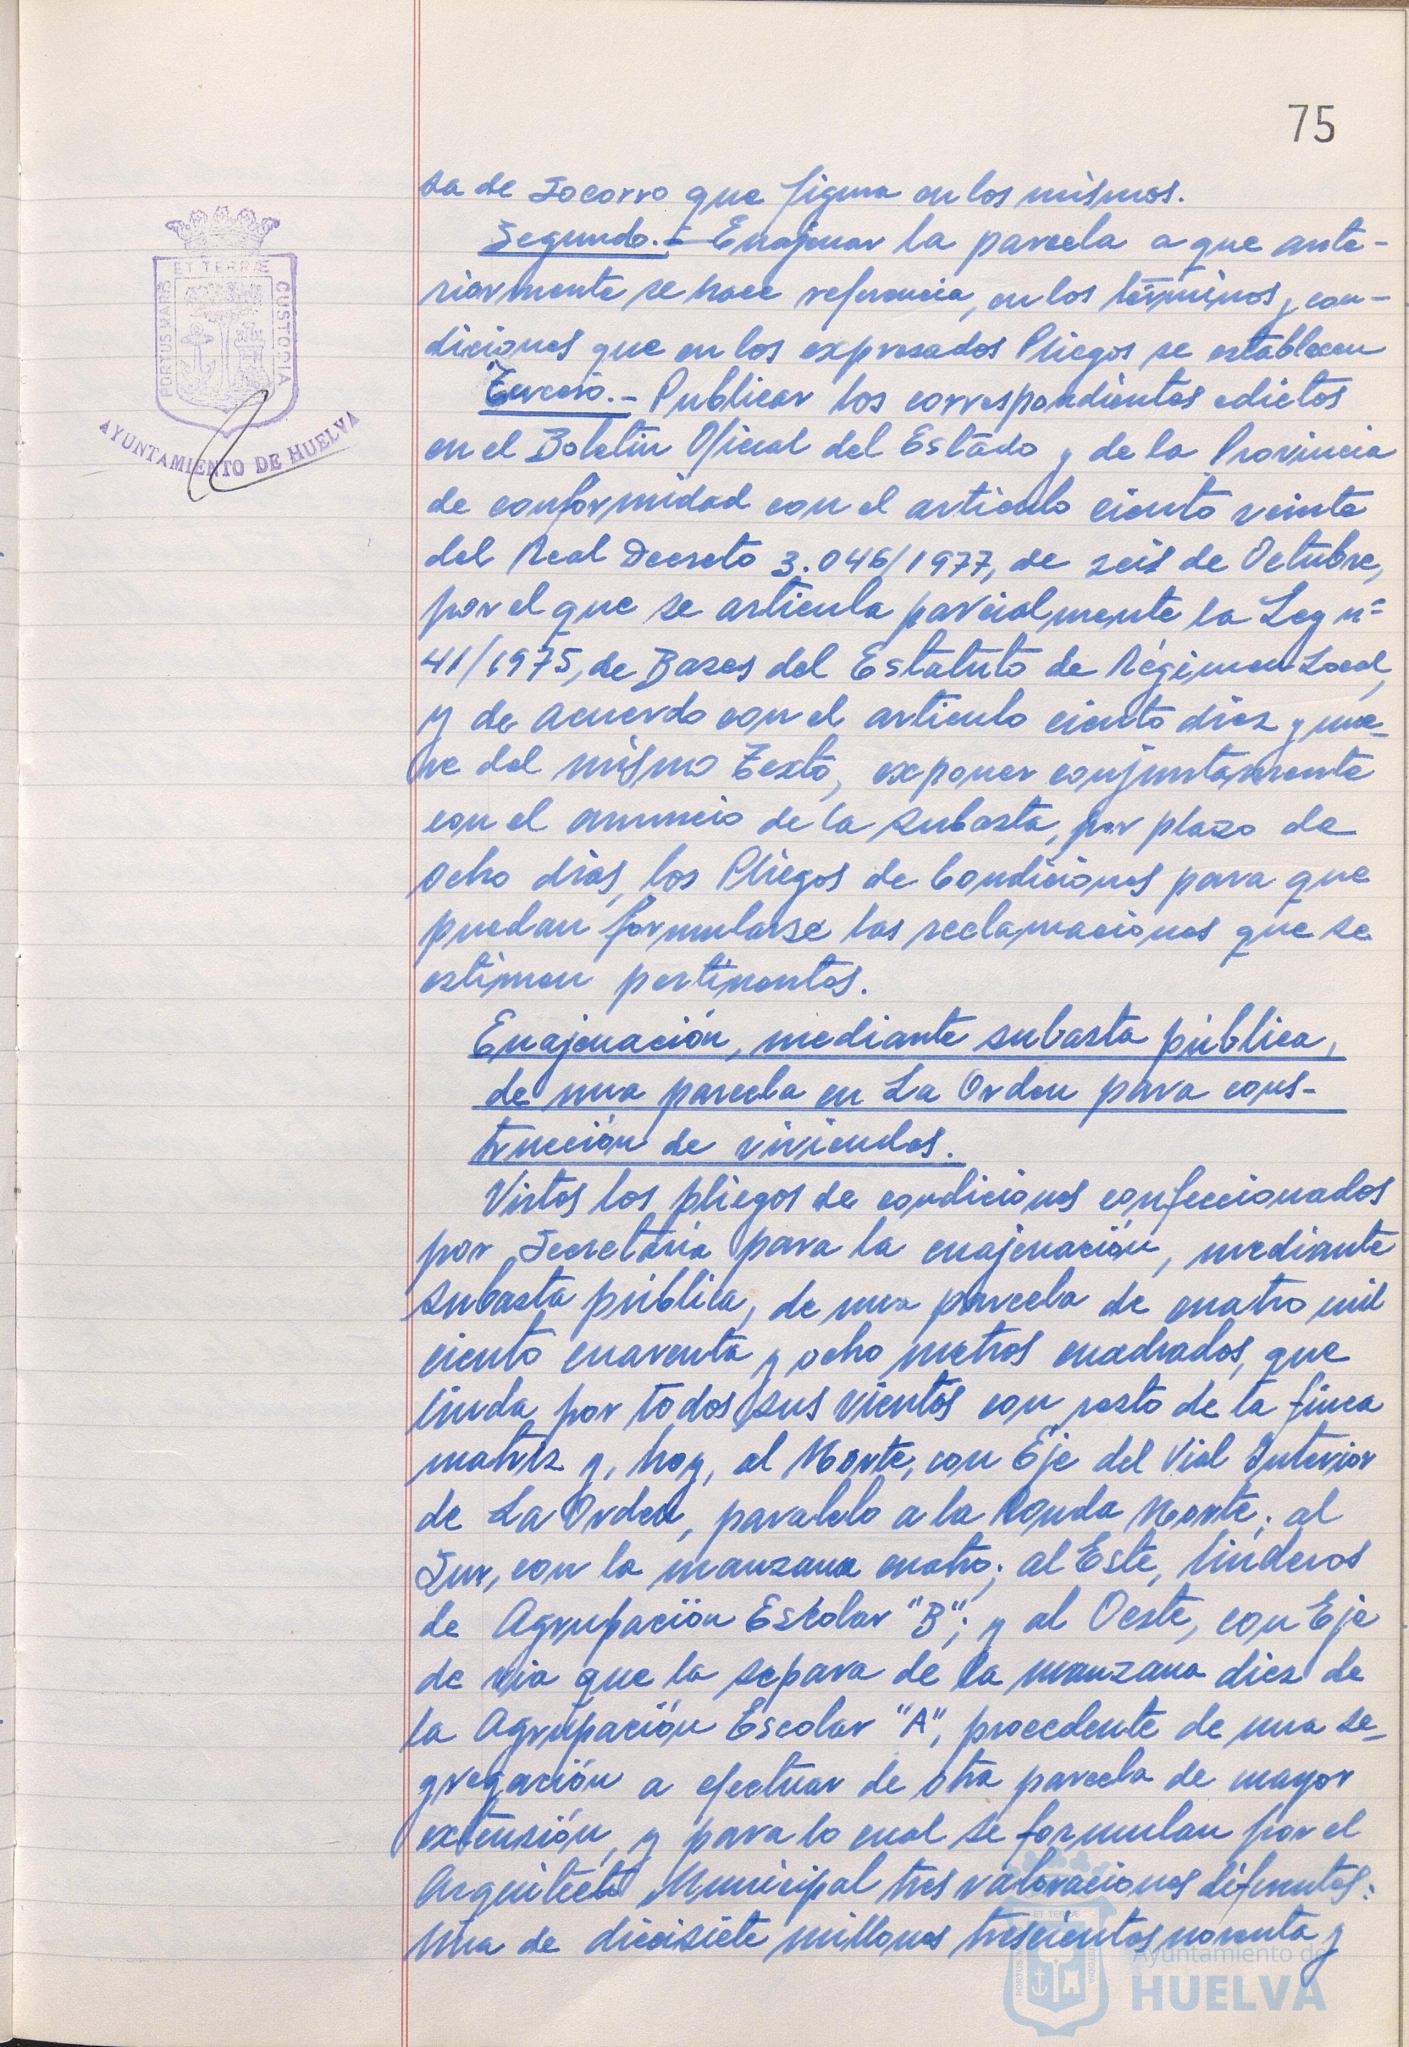 75
ET TERRÆ
PORTUS MARIS
CUSTODIA
AYUNTAMIENTO DE HUELVA
sa de Socorro que figura en los mismos.
Segundo.- Enajenar la parcela a que ante-
riormente se hace referencia, en los términos y con-
diciones que en los expresados Pliegos se establecen
Tercero.- Publicar los correspondientes edictos
en el Boletín Oficial del Estado y de la Provincia
de conformidad con el artículo ciento veinte
del Real Decreto 3.046/1977, de seis de Octubre,
por el que se articula parcialmente la Ley nº
41/1975, de Bases del Estatuto de Régimen Local,
y de acuerdo con el artículo ciento diez y nue-
ve del mismo Texto, exponer conjuntamente
con el anuncio de la subasta, por plazo de
ocho días, los Pliegos de Condiciones para que
puedan formularse las reclamaciones que se
estimen pertinentes.
Enajenación, mediante subasta pública,
de una parcela en La Orden para cons-
trucción de viviendas.
Vistos los pliegos de condiciones confeccionados
por Secretaría para la enajenación, mediante
subasta pública, de una parcela de cuatro mil
ciento cuarenta y ocho metros cuadrados, que
linda por todos sus vientos con resto de la finca
matriz y, hoy, al Norte, con Eje del Vial Interior
de La Orden, paralelo a la Ronda Norte; al
Sur, con la manzana cuatro; al Este, linderos
de Agrupación Escolar "B"; y al Oeste, con Eje
de vía que la separa de la manzana diez de
la Agrupación Escolar "A", procedente de una se-
gregación a efectuar de otra parcela de mayor
extensión, y para lo cual se formulan por el
Arquitecto Municipal tres valoraciones diferentes:
Una de diecisiete millones trescientos noventa y
Ayuntamiento de
HUELVA